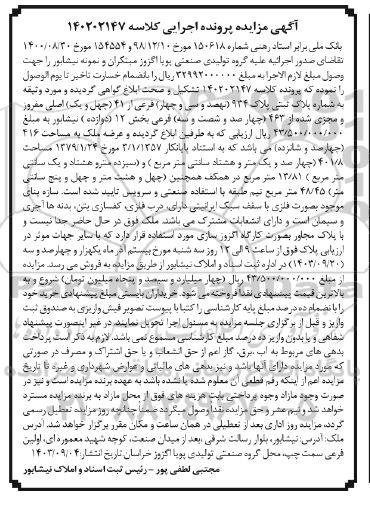 آگهی مزایده پرونده اجرایی کلاسه ۱۴۰۲۰۲۱۴۷
بانک ملی برابر اسناد رهنی شماره ۱۵۰۶۱۸ مورخ ۹۸/۱۲/۱۰ و ۱۵۴۵۵۴ مورخ ۱۴۰۰/۰۸/۳۰
تقاضای صدور اجرائیه علیه گروه تولیدی صنعتی پویا اگزوز مبتکران و نمونه نیشابور را جهت
وصول مبلغ لازم الاجرا به مبلغ ۳۲۹۹۲۰۰۰۰۰۰ ریال را بانضمام خسارت تاخیر تا یوم الوصول
را نموده که پرونده کلاسه ۱۴۰۲۰۲۱۴۷ تشکیل و صحت ابلاغ گواهی گردیده و مورد وثیقه
به شماره پلاک ثبتی پلاک ۹۳۴ (نهصد و سی و چهار) فرعی از ۴۱ (چهل و یک) اصلی مفروز
و مجزی شده از ۴۶۳ (چهار صد و شصت و سه) فرعی بخش ۱۲ (دوازده) نیشابور به مبلغ
۴۳/۵۰۰/۰۰۰/۰۰۰ ریال ارزیابی که به طرفین ابلاغ گردیده و عرصه ملک به مساحت ۴۱۶
(چهارصد و شانزده) می باشد که به استناد پایانکار ۳/۱/۱۳۵۷ مورخ ۱۳۷۹/۱/۲۴ مساحت
۴۰۷۸ (چهار صد و یک متر و هشتاد سانتی متر مربع) و (سیزده مترو هشتاد و یک سانتی
متر مربع) ۱۳/۸۱ متر مربع در همکف همچنین (چهل و هشت متر و چهل و پنج سانتی
متر) ۴۸/۴۵ متر مربع نیم طبقه با استفاده صنعتی و سرویس تایید شده است. سازه بنای
موجود بصورت فلزی با سقف سبک ایرانیتی دارای، درب فلزی، کفسازی بتن، بدنه ها آجری
و سیمان است و دارای انشعابات مشترک می باشد. ملک فوق در حال حاضر جدا نیست و
با پلاک مجاور بصورت کارگاه اگزوز سازی مورد استفاده قرار دارد که با سایر جهات موثر در
ارزیابی پلاک فوق از ساعت ۹ الی ۱۲ روز سه شنبه مورخ بیستم آذر ماه یکهزار و چهارصد و سه
(۱۴۰۳/۰۹/۲۰) در اداره ثبت اسناد و املاک نیشابور از طریق مزایده به فروش می رسد. مزایده
از مبلغ ۴۳/۵۰۰/۰۰۰/۰۰۰ ریال (چهار میلیارد و سیصد و پنجاه میلیون تومان) شروع و به
بالاترین قیمت پیشنهادی نقدا فروخته می شود. خریداران بایستی مبلغ پیشنهادی خرید خود
را بانضمام ده درصد مبلغ پایه کارشناسی را کتبا با پیوست تصویر فیش واریزی به صندوق ثبت
واریز و قبل از برگزاری جلسه مزایده به مسئول اجرا تحویل نمایند. در غیر اینصورت پیشنهاد
شفاهی و یا بدون واریز ده درصد مبلغ کارشناسی مسموع نمی باشد. لازم به ذکر است پرداخت
بدهی های مربوط به آب ،برق، گاز اعم از حق انشعاب و یا حق اشتراک و مصرف در صورتی
که مورد مزایده دارای آنها باشد و نیز بدهی های مالیاتی و عوارض شهرداری و غیره تا تاریخ
مزایده اعم از اینکه رقم قطعی آن معلوم شده یا نشده باشد به عهده برنده مزایده است و نیز در
صورت وجود مازاد وجوه پرداختی بابت هزینه های فوق از محل مازاد به برنده مزایده مسترد
خواهد شد و نیم عشر و حق مزایده نقدا وصول میگردد ضمنا چنانچه روز مزایده تعطیل رسمی
گردد، مزایده روز اداری بعد از تعطیلی در همان ساعت و مکان مقرر برگزار خواهد شد. آدرس
ملک: آدرس: نیشابور، بلوار رسالت شرقی ،بعد از میدان صنعت، کوچه شهید معموره ای، اولین
فرعی سمت چپ، محل گروه صنعتی تولیدی پویا اگزوز خراسان تاریخ انتشار:۱۴۰۳/۰۹/۰۴
مجتبی لطفی پور - رئیس ثبت اسناد و املاک نیشابور